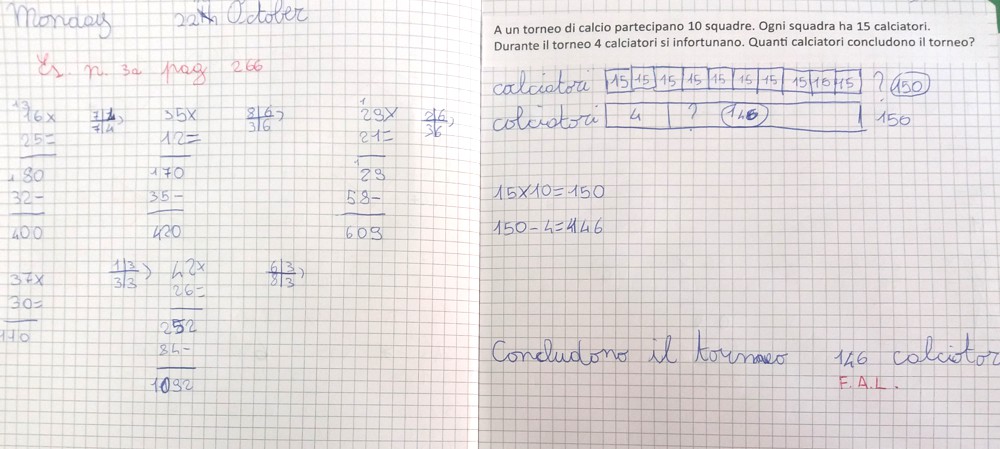 Monday 22th October
Es. n. 3a pag 266
16x
25=
80
32-
400
35x
12=
170
35-
420
29x
21=
29
58-
609
37x
30=
1110
42x
26=
252
84-
1092
A un torneo di calcio partecipano 10 squadre. Ogni squadra ha 15 calciatori.
Durante il torneo 4 calciatori si infortunano. Quanti calciatori concludono il torneo?
calciatori 15 15 15 15 15 15 15 15 15 15 ? 150
calciatori 4 ? 146 150
15x10=150
150-4=146
Concludono il torneo 146 calciator
F.A.L.